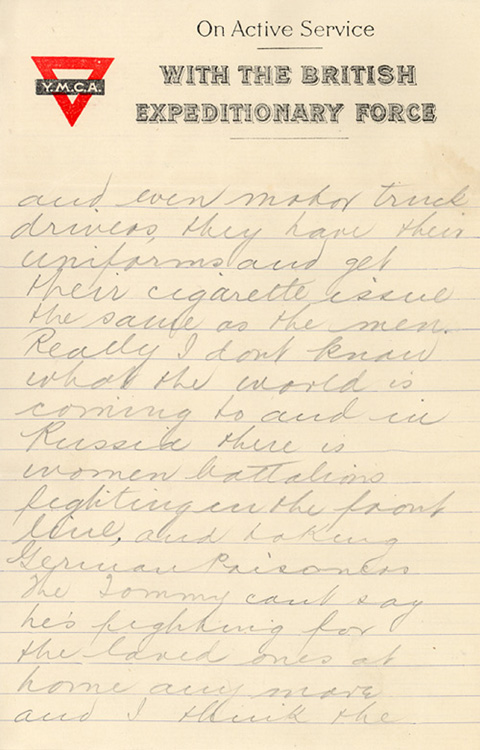 On Active Service
WITH THE BRITISH
EXPEDITIONARY FORCE
Y.M.C.A.
and even motor truck
drivers, they have their
uniforms and get
their cigarette issue
the same as the men.
Really I dont know
what the world is
coming to and in
Russia there is
women battalions
fighting in the front
line, and taking
German Prisoners
The Tommy cant say
he's fighting for
the loved ones at
home any more
and I think the